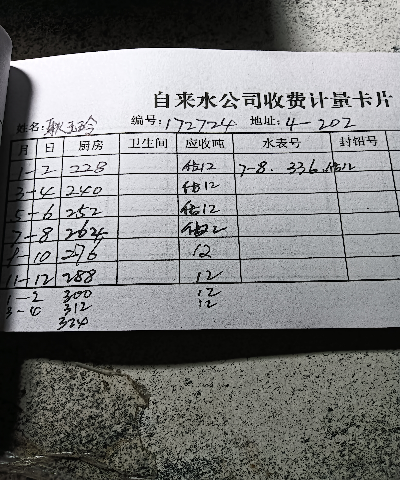 自来水公司收费计量卡片
姓名: 耿玉玲 编号: 172724 地址: 4-202
月 日 厨房 卫生间 应收吨 水表号 封铅号
1-2 228 估12 7-8. 336.估12
3-4 240 估12
5-6 252 估12
7-8 264 估12
9-10 276 12
11-12 288 12
1-2 300 12
3-4 312 12
324